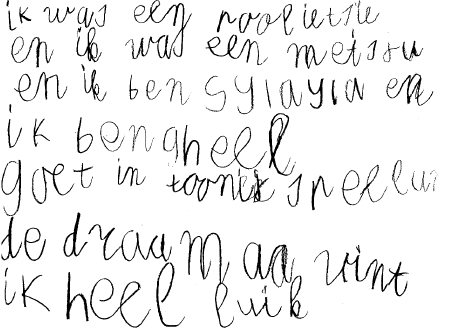 ik was een roolietsie
en ik was een metsru
en ik ben sylayla en
ik ben gheel
goet in tooner speelun
de draamaa vint
ik heel luik